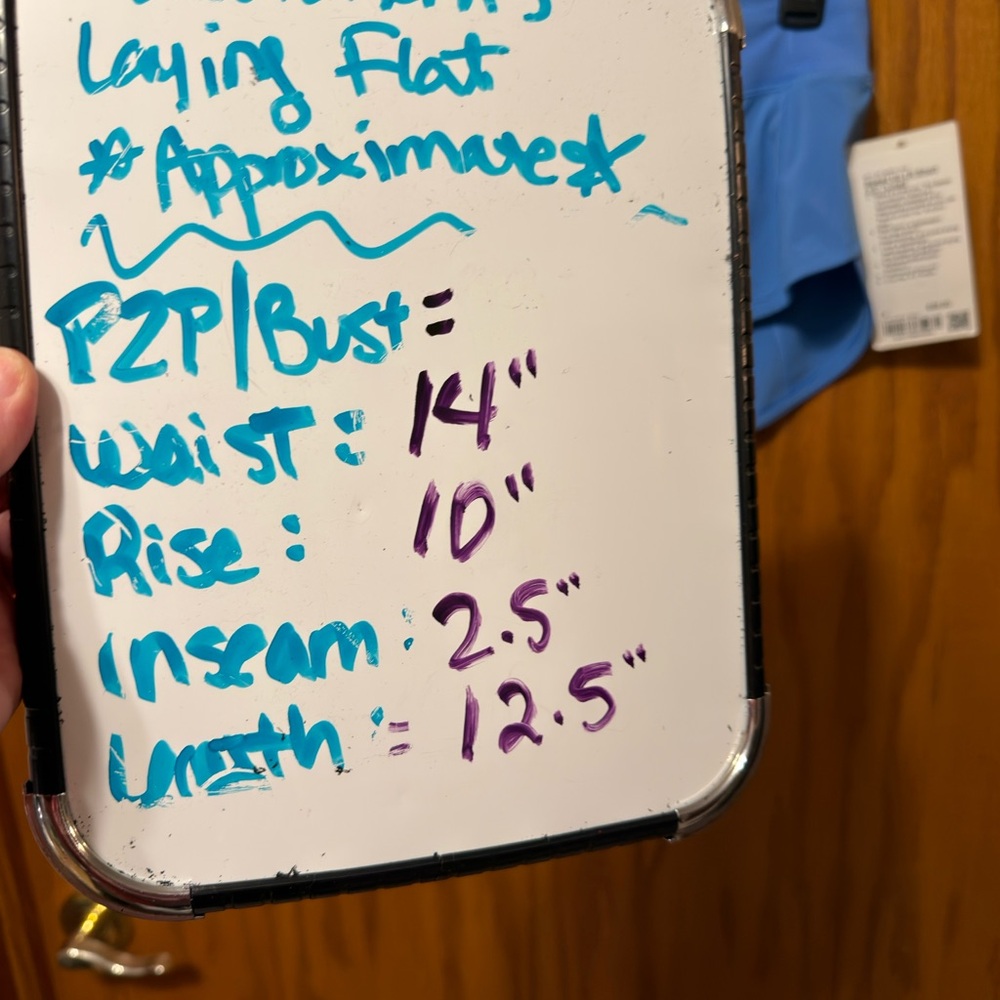 Laying Flat
*Approximates*
P2P/Bust =
Waist : 14"
Rise : 10"
Inseam : 2.5"
Length := 12.5"